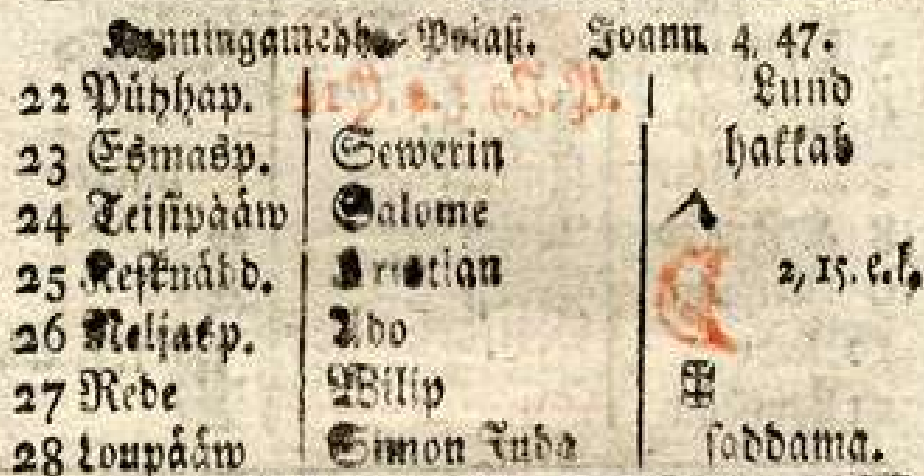 Kunningamehhe Poiast. Joann. 4, 47.
22 Pühhap. 21 P. p. 3 K. P. Lund
23 Esmasp. Sewerin hakkab
24 Teisipääw Salome
25 Kesknäd. Kristian 2, 15. e. k.
26 Neljasp. Ado
27 Rede Wilip
28 Loupääw Simon Juda saddama.